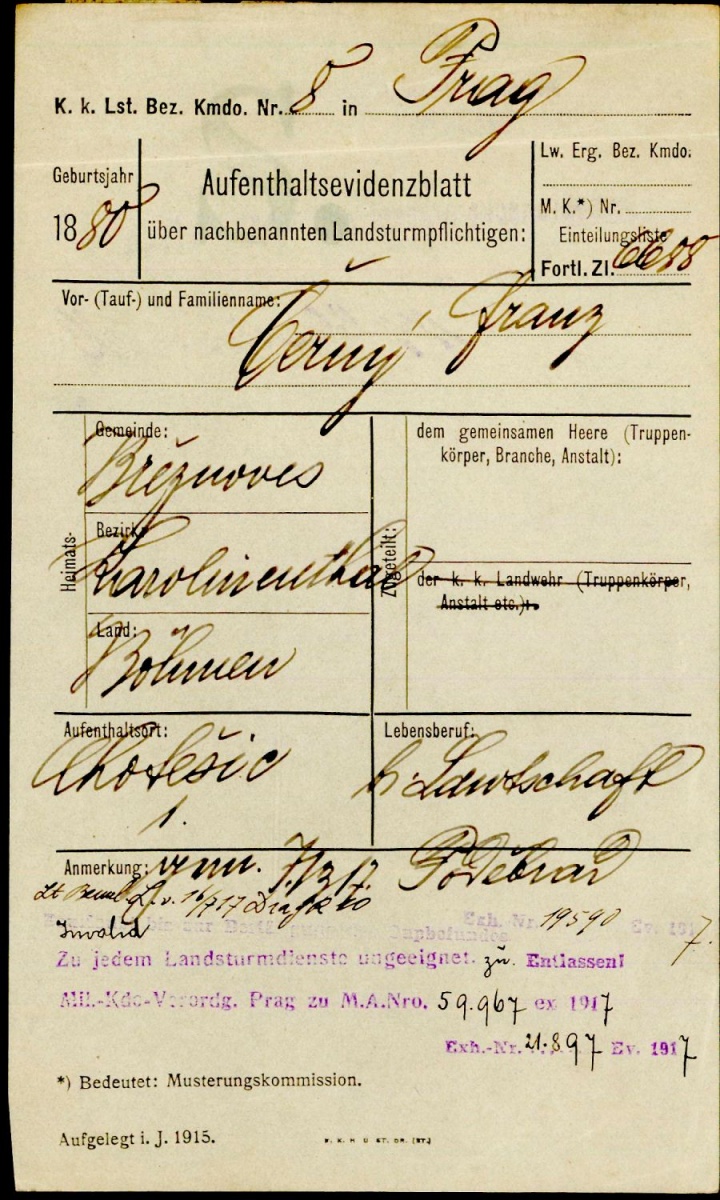 K. k. Lst. Bez. Kmdo. Nr. 8 in Prag
Geburtsjahr
1880
Aufenthaltsevidenzblatt
über nachbenannten Landsturmpflichtigen:
Lw. Erg. Bez. Kmdo.
M. K.*) Nr.
Einteilungsliste
Fortl. Zl.
Vor- (Tauf-) und Familienname:
Černý Franz
Heimats-
Gemeinde:
Břežnoves
Bezirk:
Karolinenthal
Land:
Böhmen
Zugeteilt:
dem gemeinsamen Heere (Truppen-
körper, Branche, Anstalt):
der k. k. Landwehr (Truppenkörper,
Anstalt etc.):
Aufenthaltsort:
Chotěšic
1.
Lebensberuf:
Lantschaft
Anmerkung: 7/3 17 Poděbrad
Invalid
Exh. Nr. 19590 Ev. 1917.
Zu jedem Landsturmdienste ungeeignet. zu Entlassen!
Mil.-Kdo-Verordg. Prag zu M.A.Nro. 59.967 ex 1917
Exh.-Nr. 21.897 Ev. 1917
*) Bedeutet: Musterungskommission.
Aufgelegt i. J. 1915.